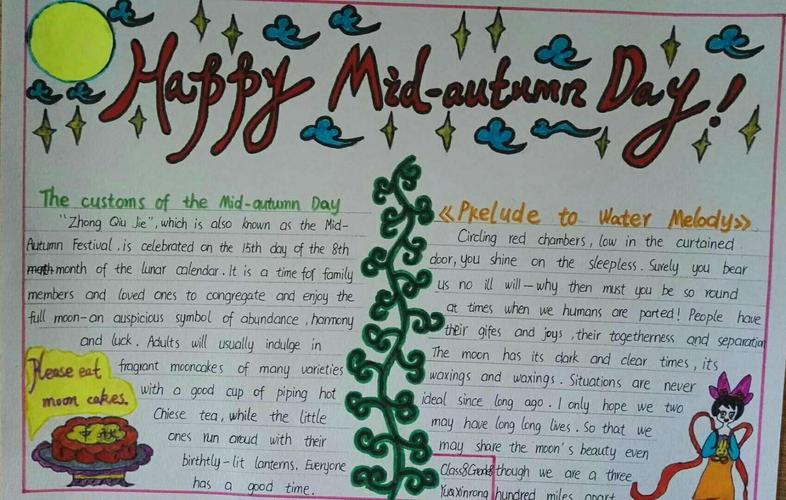 Happy Mid-autumn Day!
The customs of the Mid-autumn Day
"Zhong Qiu Jie", which is also known as the Mid-
Autumn Festival, is celebrated on the 15th day of the 8th
month of the lunar calendar. It is a time for family
members and loved ones to congregate and enjoy the
full moon-an auspicious symbol of abundance, harmony
and luck. Adults will usually indulge in
fragrant mooncakes of many varieties
with a good cup of piping hot
Chiese tea, while the little
ones run aroud with their
birthtly-lit lanterns. Everyone
has a good time.
Please eat
moon cakes.
中秋
《Prelude to Water Melody》
Circling red chambers, low in the curtained
door, you shine on the sleepless. Surely you bear
us no ill will—why then must you be so round
at times when we humans are parted! People have
their gifes and joys, their togetherness and separation
The moon has its dark and clear times, its
waxings and waxings. Situations are never
ideal since long ago. I only hope we two
may have long long lives. So that we
may share the moon's beauty even
though we are a three
hundred miles apart
Class8Grade8
Yuaxinrong